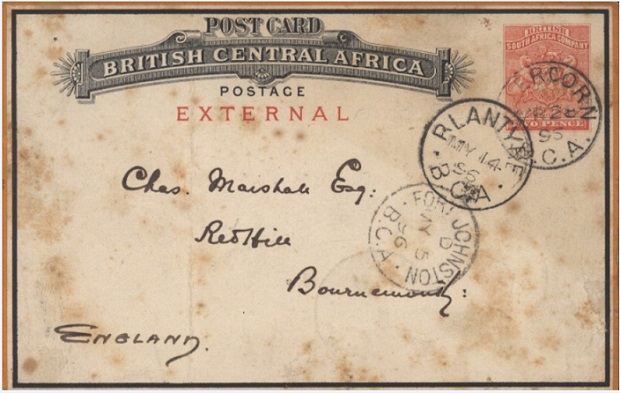 POST CARD
BRITISH CENTRAL AFRICA
POSTAGE
EXTERNAL
BRITISH
SOUTH AFRICA COMPANY
TWO PENCE
B.C.A.
BLANTYRE
MY 14
B.C.A
FORT JOHNSTON
D
MY 5
96
B.C.A.
Chas. Marshall Esq:
RedHill
Bournemouth:
ENGLAND.